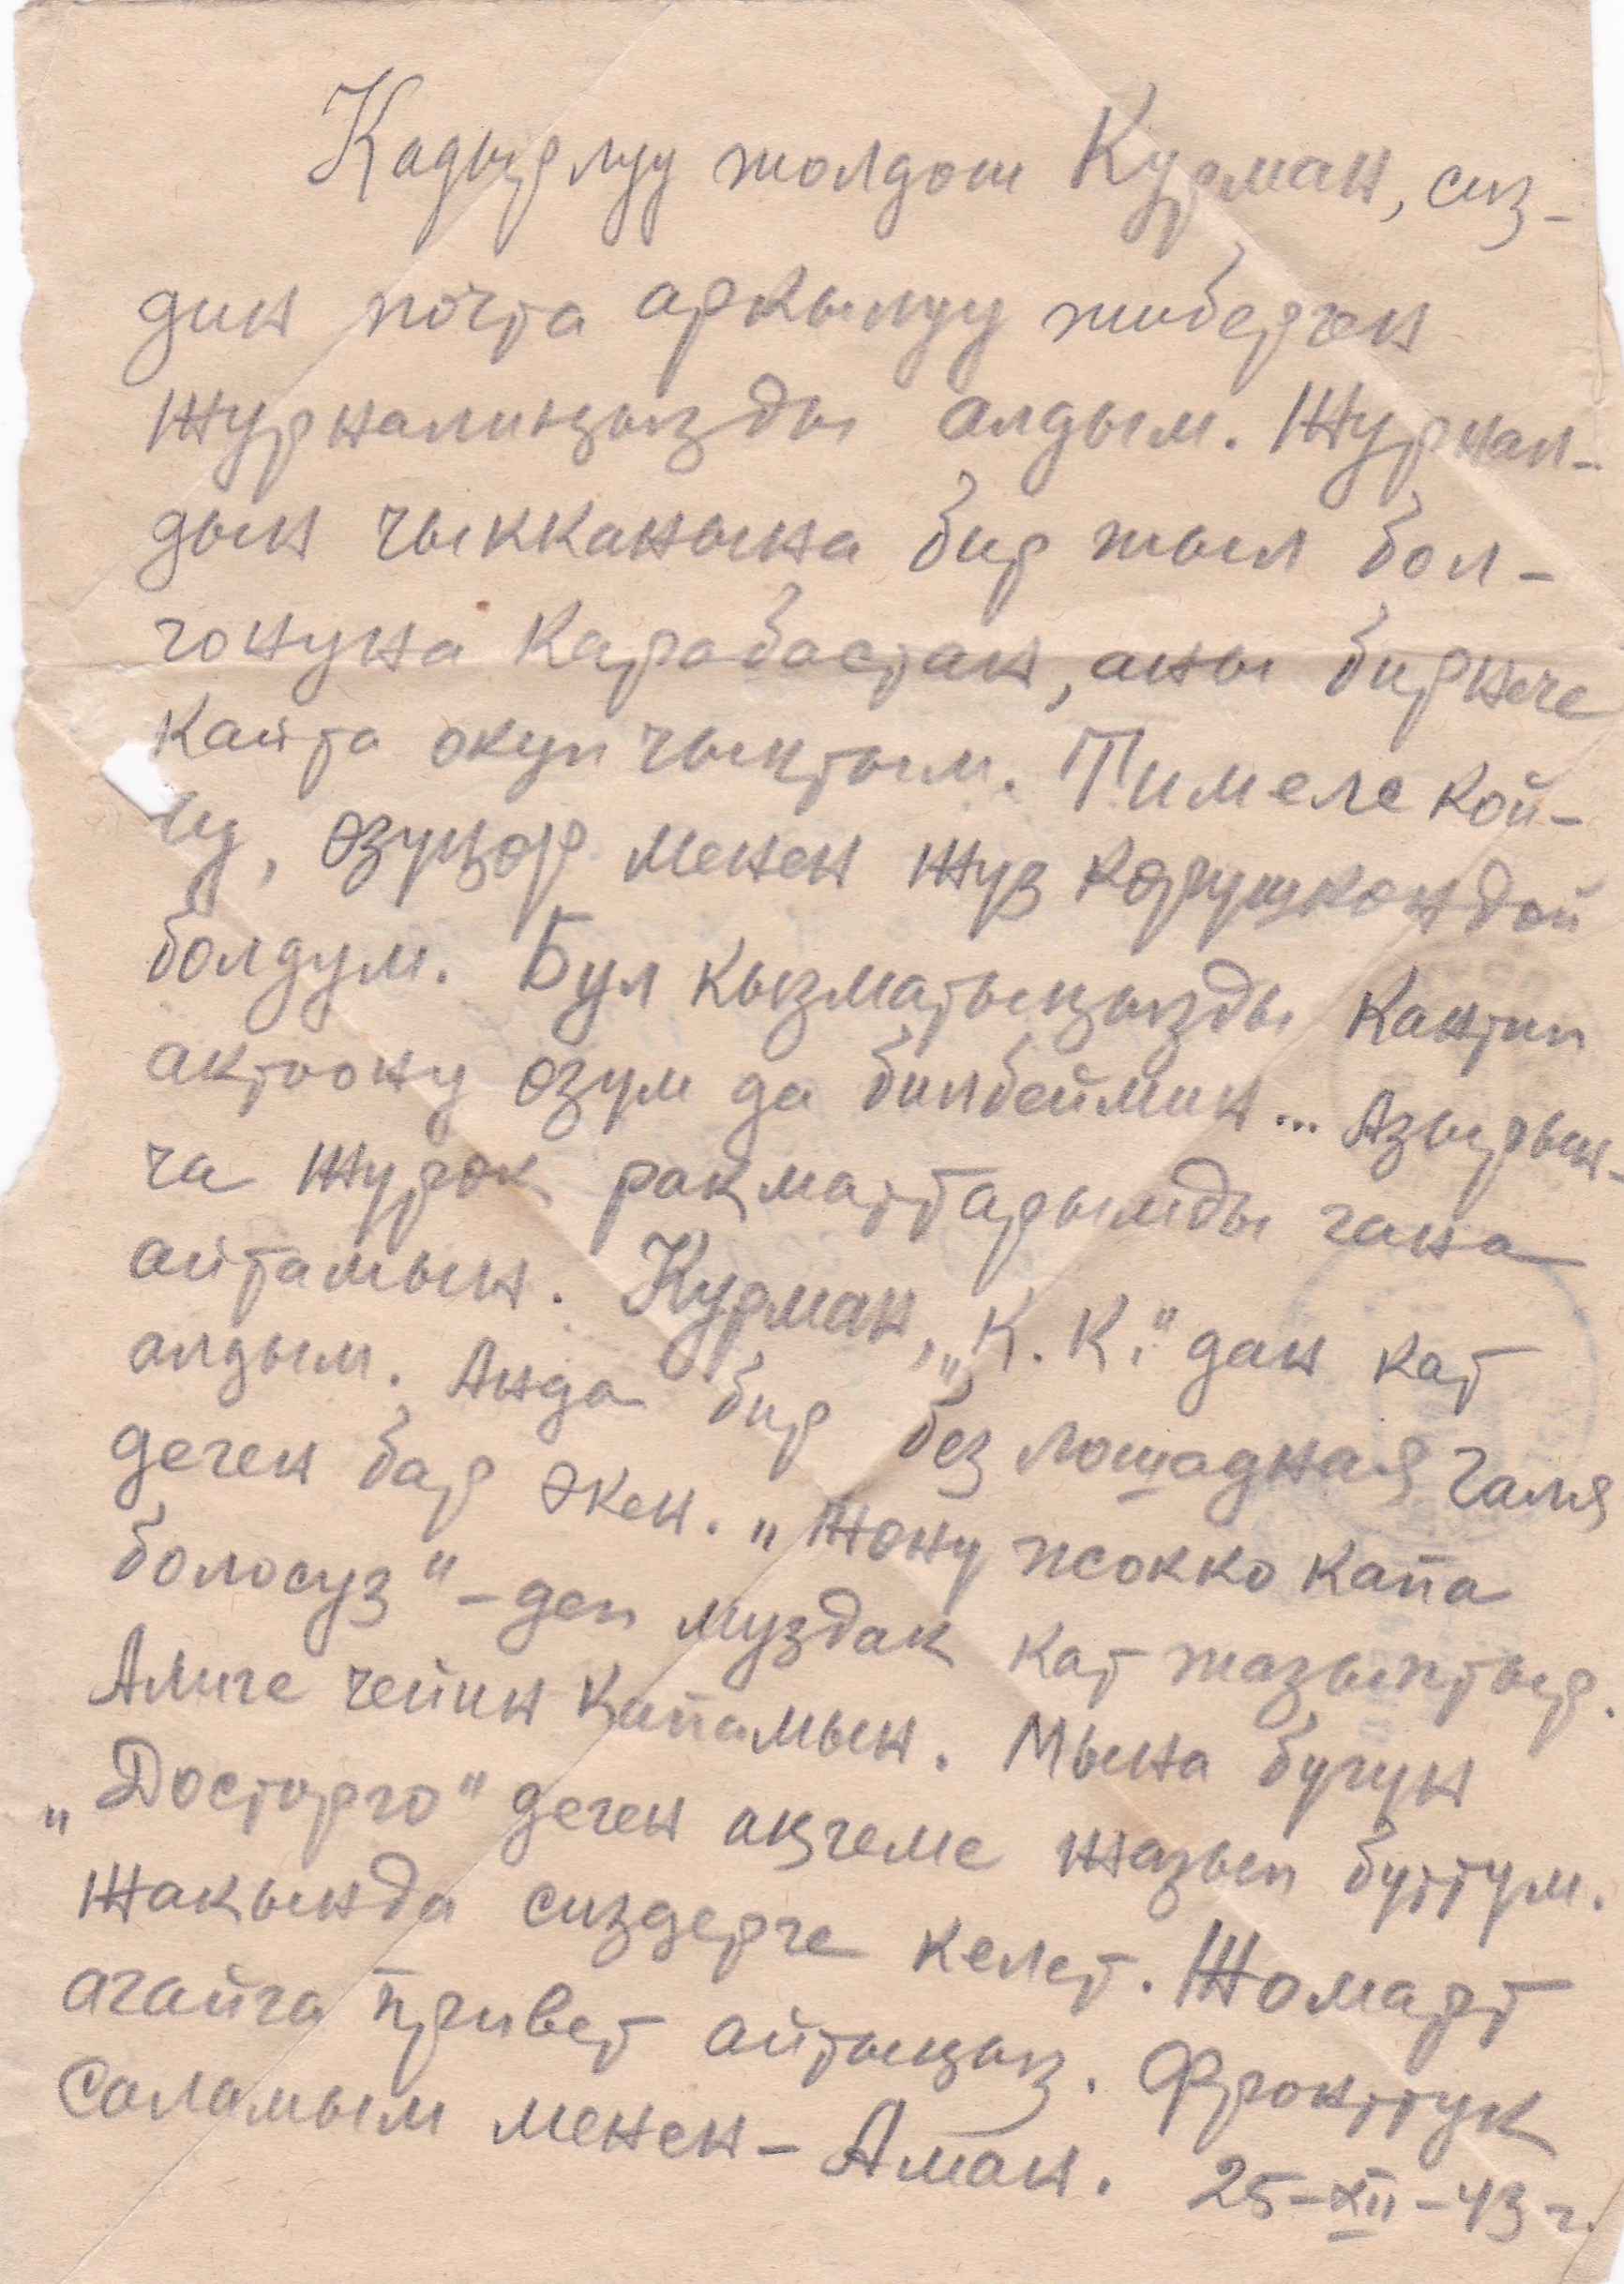 Кадырлуу жолдош Курман, сиз-
дин почта аркылуу жиберген
журналиңызды алдым. Журнал-
дын чыкканына бир жыл бол-
гонуна карабастан, аны бирнече
кайта окуп чыктым. Тим эле кой-
чу, өзүңөр менен жүз көрүшкөндөй
болдум. Бул кызматыңызды кантип
актоону өзүм да билбеймин... Азырын-
ча жүрөк рақматтарымды гана
айтамын. Курман, „К. К." дан кат
алдым. Анда бир без лошадная Галя
деген бар экен. „Жөнү жокко капа
болосуз" – деп муздак кат жазыптыр.
Алиге чейин капамын. Мына бүгүн
„Досторго" деген аңгеме жазып бүттүм.
Жакында сиздерге келет. Жомарт
агайга привет айтыңыз. Фронттук
саламым менен – Аман. 25–XII–43 г.